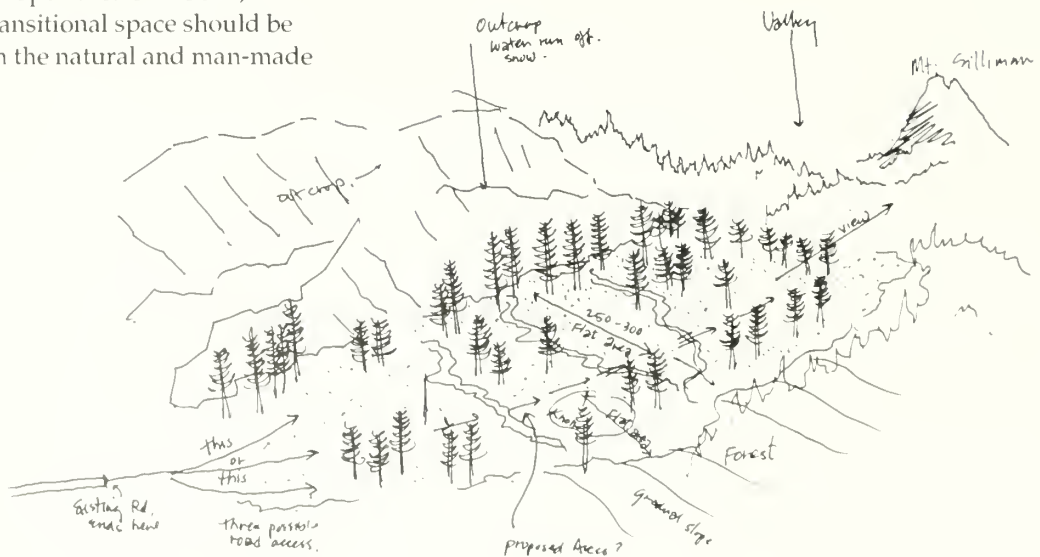 ransitional space should be
n the natural and man-made
Outcrop
water run off.
snow.
Valley
Mt. Silliman
outcrop.
view
250-300
Flat area
Knoll
Flat area
this
or
this
Existing Rd.
ends here
three possible
road access.
proposed Access?
Forest
gradual slope